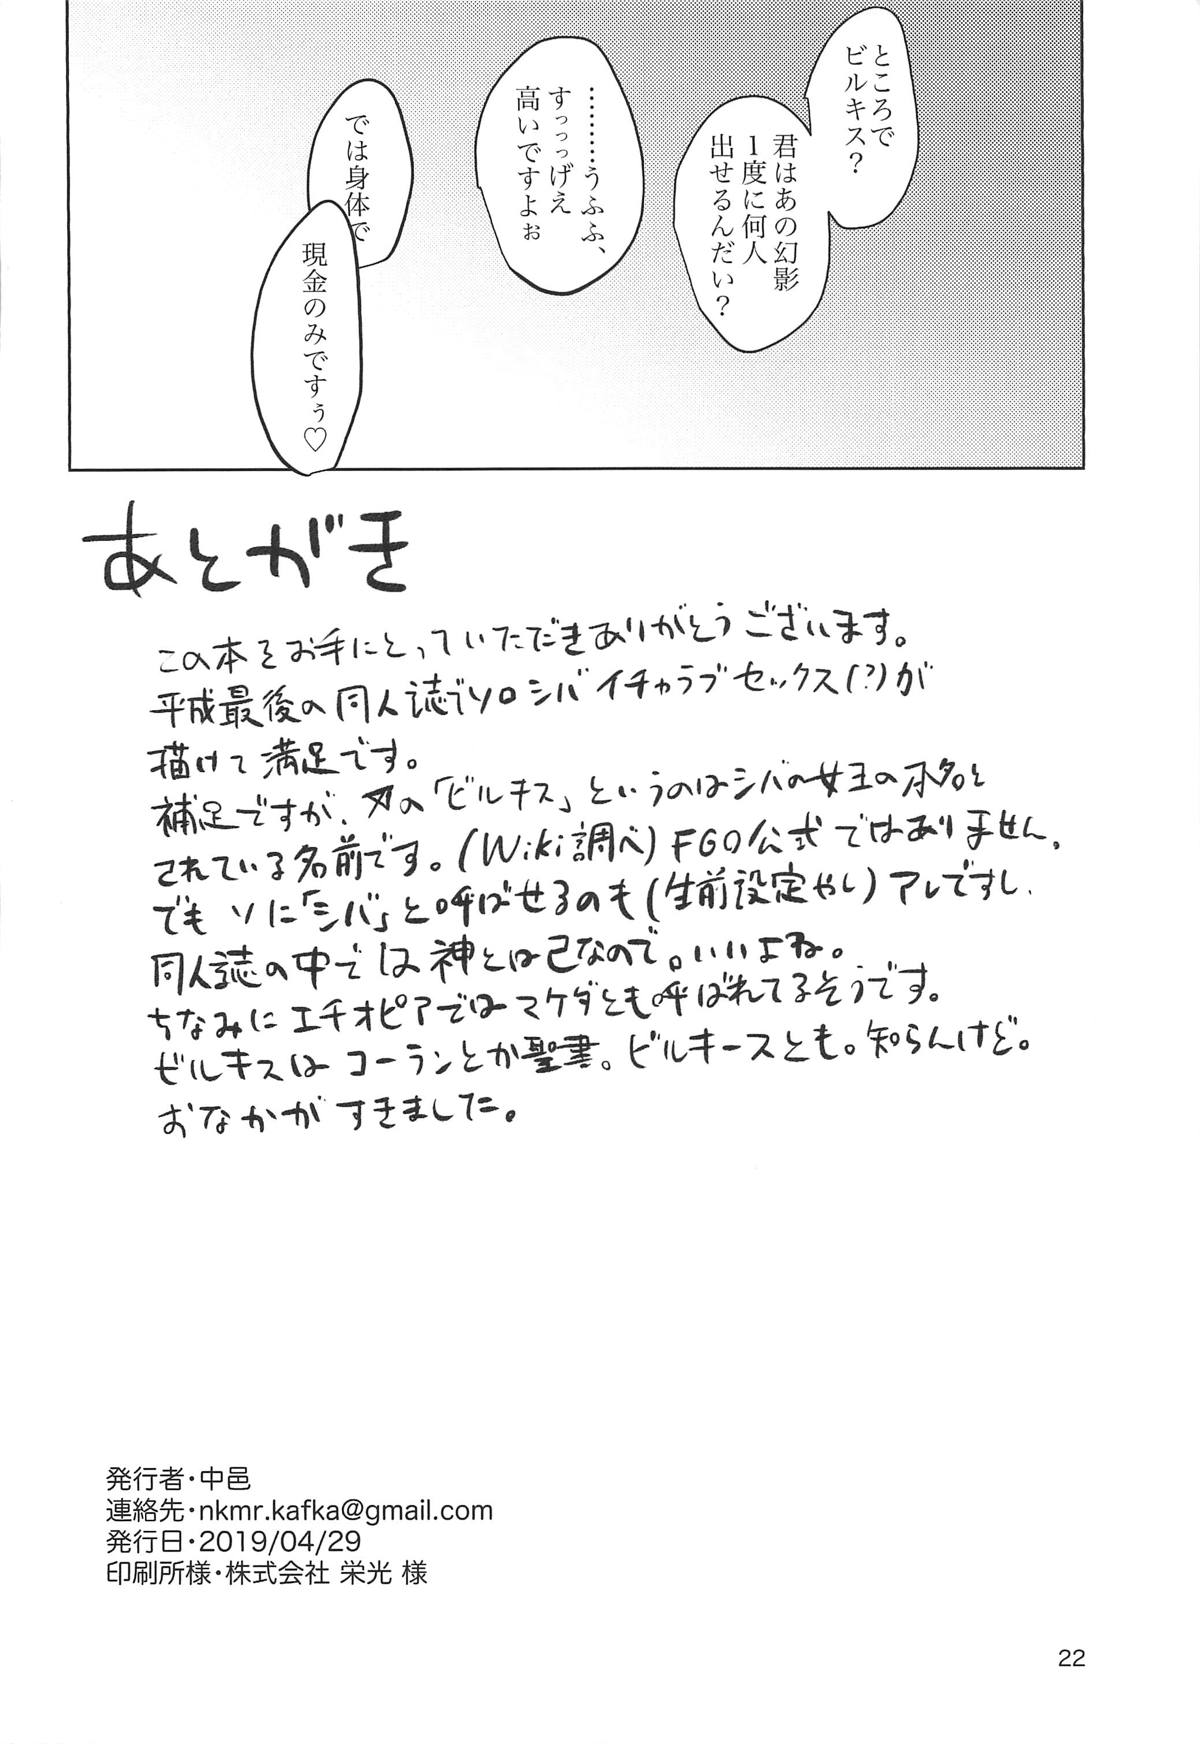 ところで
ビルキス？
君はあの幻影
１度に何人
出せるんだい？
………うふふ、
すっっっげえ
高いですよぉ
では身体で
現金のみですぅ♡
あとがき
この本をお手にとっていただきありがとうございます。
平成最後の同人誌でソロシバイチャラブセックス(？)が
描けて満足です。
補足ですが、〆の「ビルキス」というのはシバの女王の本名と
されている名前です。(Wiki調べ)FGO公式ではありません。
でもソに「シバ」と呼ばせるのも(生前設定やし)アレですし、
同人誌の中では神とは己なので。いいよね。
ちなみにエチオピアではマケダとも呼ばれてるそうです。
ビルキスはコーランとか聖書。ビルキースとも。知らんけど。
おなかがすきました。
発行者・中邑
連絡先・nkmr.kafka@gmail.com
発行日・2019/04/29
印刷所様・株式会社 栄光 様
22